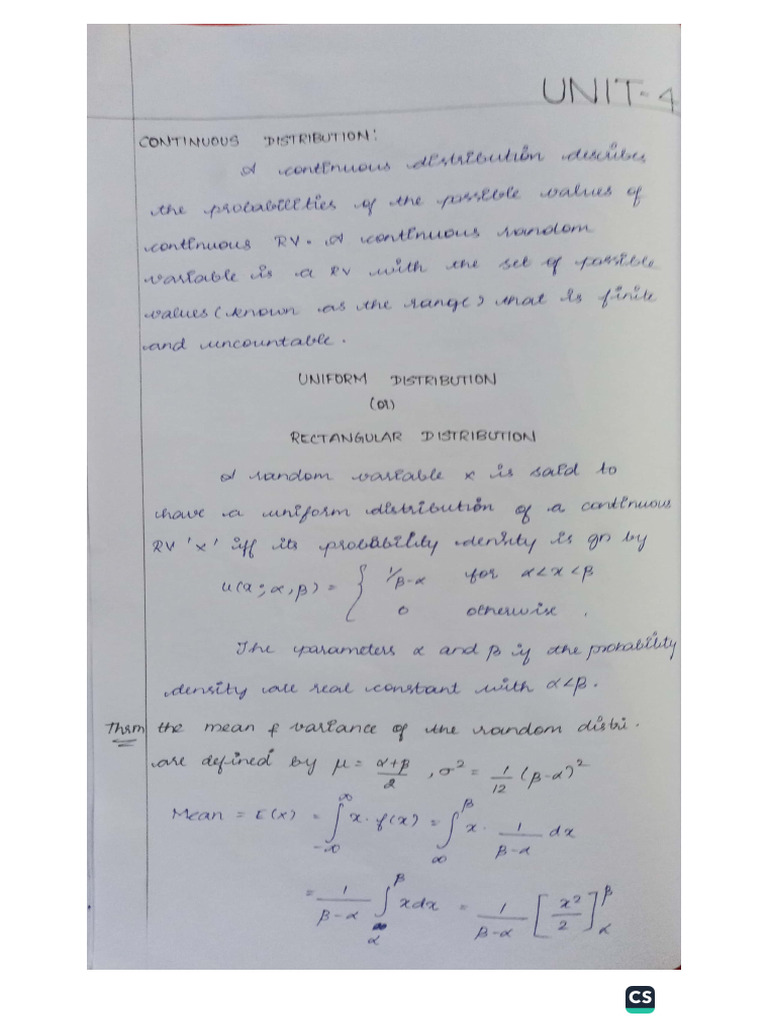 UNIT-4
CONTINUOUS DISTRIBUTION:
A continuous distribution describes
the probabilities of the possible values of
continuous RV. A continuous random
variable is a RV with the set of possible
values (known as the range) that is finite
and uncountable.
UNIFORM DISTRIBUTION
(or)
RECTANGULAR DISTRIBUTION
A random variable x is said to
have a uniform distribution of a continuous
RV 'x' iff its probability density is gn by
u(x; α, β) = { 1/β-α for α<x<β
0 otherwise.
The parameters α and β if the probability
density are real constant with α<β.
Thrm the mean & variance of the random distri.
are defined by μ = α+β/2, σ² = 1/12 (β-α)²
Mean = E(x) = ∫_{-∞}^{∞} x. f(x) = ∫_{∞}^{β} x. 1/β-α dx
= 1/β-α ∫_{α}^{β} x dx = 1/β-α [x²/2]_{α}^{β}
CS